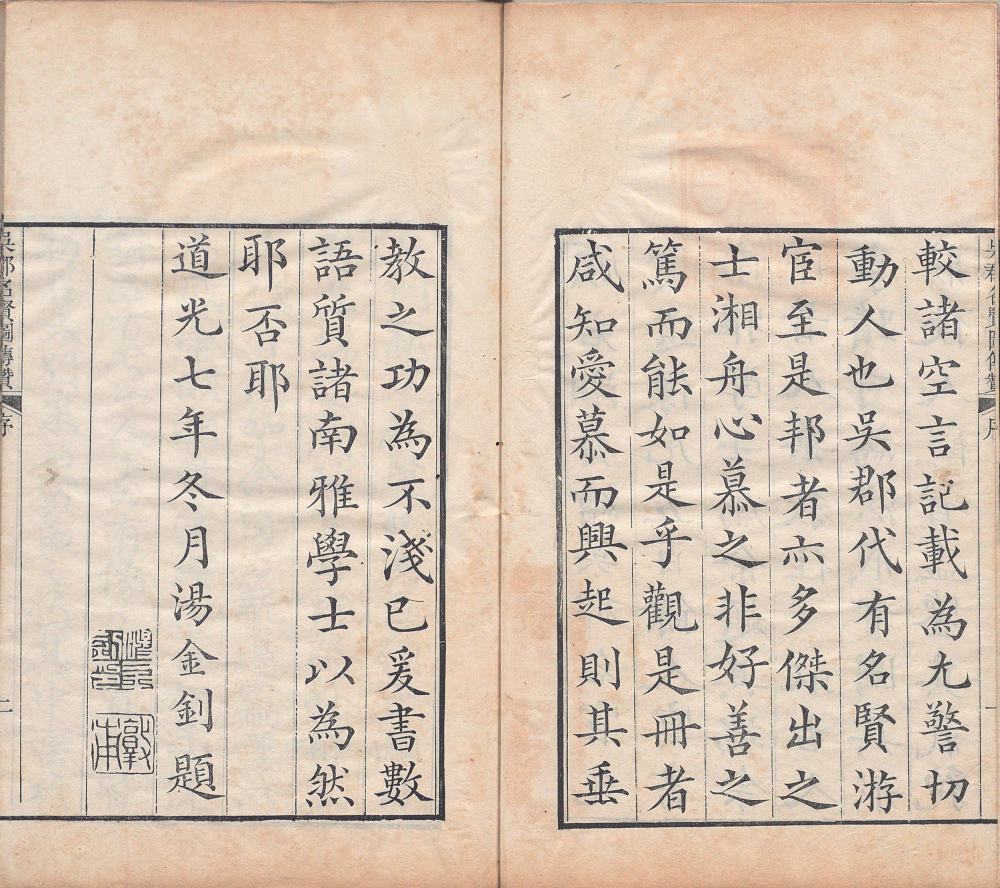 較諸空言記載為尢警切
動人也吳郡代有名賢游
宦至是邦者亦多傑出之
士湘舟心慕之非好善之
篤而能如是乎觀是冊者
咸知愛慕而興起則其垂
教之功為不淺已爰書數
語質諸南雅學士以為然
耶否耶
道光七年冬月湯金釗題
敦甫
吳郡名賢圖傳贊
序
二